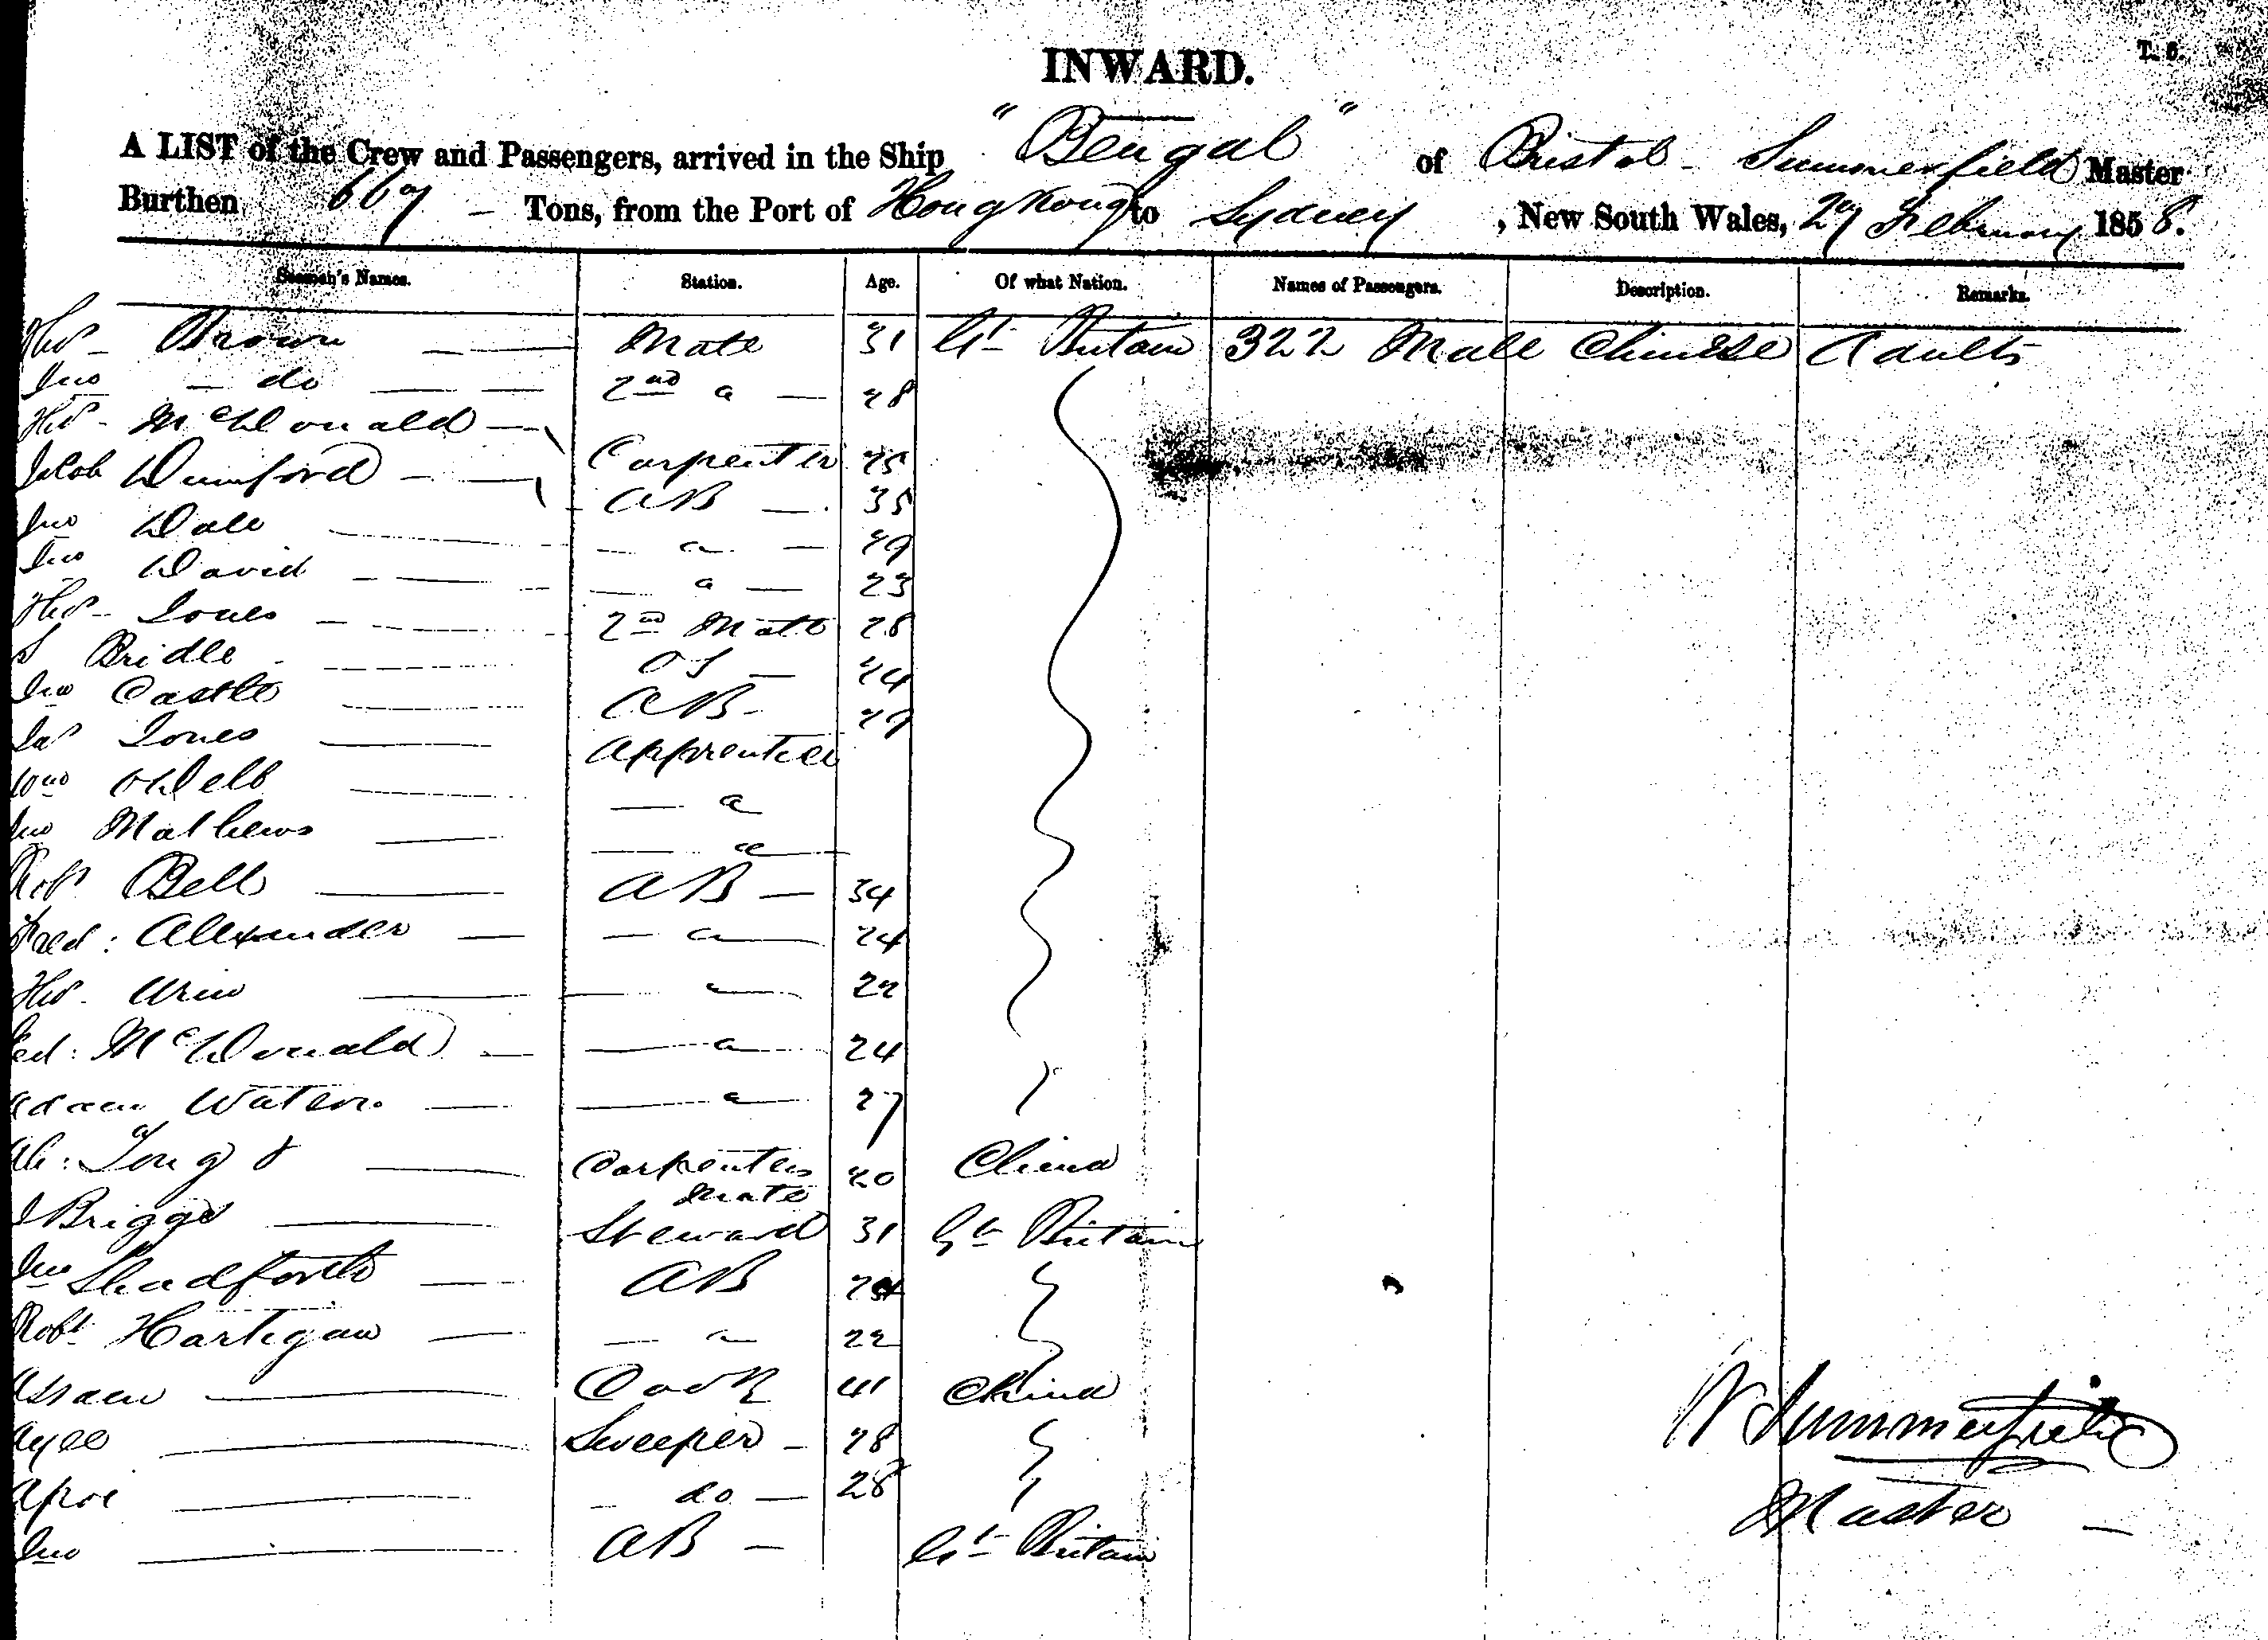 INWARD.
T. 6.
A LIST of the Crew and Passengers, arrived in the Ship "Bengal" of Bristol - Summerfield Master
Burthen 669 - Tons, from the Port of Hong Kong to Sydney, New South Wales, 27 February 1858.
Seaman's Names. Station. Age. Of what Nation. Names of Passengers. Description. Remarks.
Thos Brown Mate 31 Gt Britain 322 Male Chinese Adults
Jno do 2nd a 28
Thos McDonald Carpenter 25
Jacob Dunford AB 35
Jno Dale a 29
Jno David a 23
Thos Jones 2nd Mate 28
S Bridle OS 24
Jno Castle AB 29
Jas Jones Apprentice
Odell a
Jno Mathews a
Robt Bell AB 34
Fred: Alexander a 24
Thos a 22
McDonald a 24
Adam Waters a 27
Ah: Tong Carpenters Mate 20 China
J Briggs Steward 31 Gt Britain
Jno Shadforth AB
Robt Hartigan a 22
Assam Cook 41 China
Ayee Sweeper 28
do 28
Jno AB Gt Britain
W Summerfield
Master